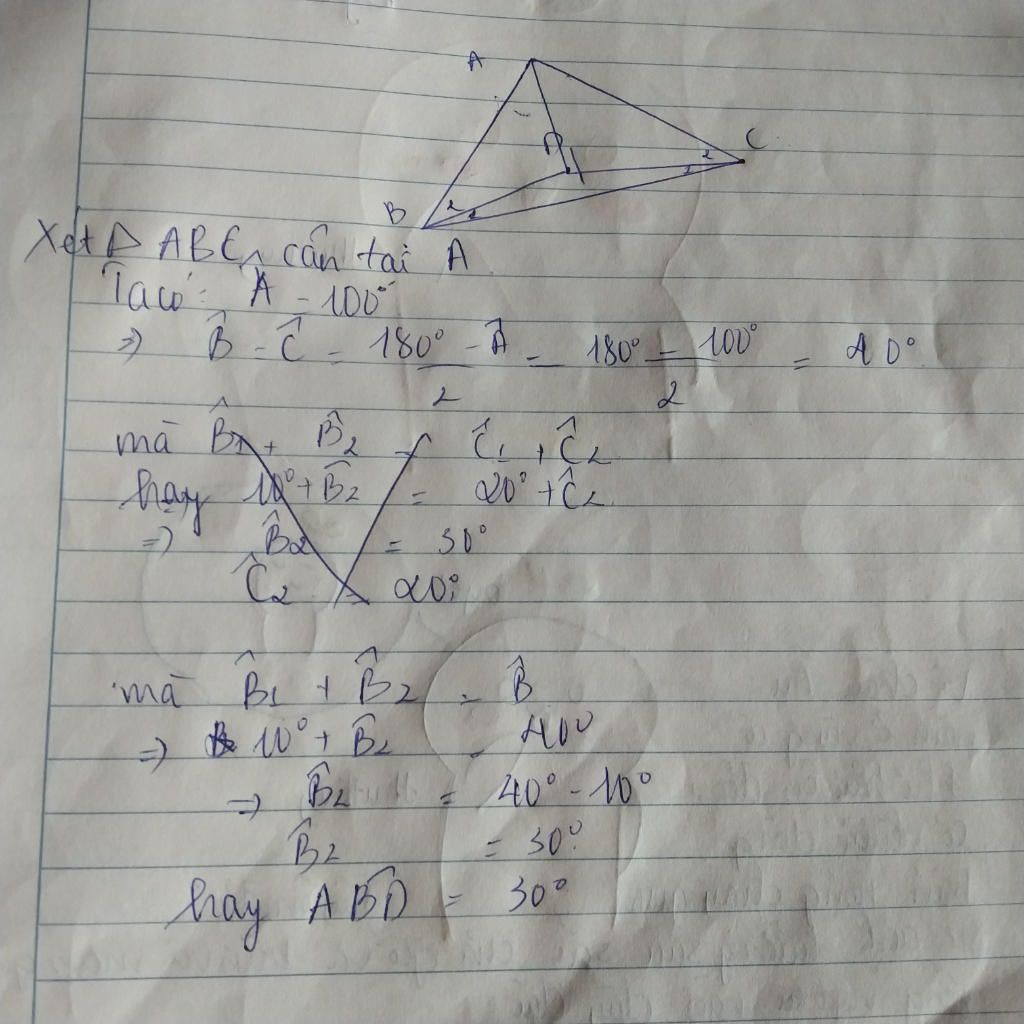 A
D
C
2
1
B
2
1
Xét Δ ABC cân tại A
Ta có: Â = 100°
=> B̂ = Ĉ = 180° - Â / 2 = 180° - 100° / 2 = 40°
mà B̂1 + B̂2 = Ĉ1 + Ĉ2
hay 10° + B̂2 = 20° + Ĉ2
=> B̂2 = 30°
Ĉ2 = 20°
mà B̂1 + B̂2 = B̂
=> 10° + B̂2 = 40°
=> B̂2 = 40° - 10°
B̂2 = 30°
hay AB̂D = 30°